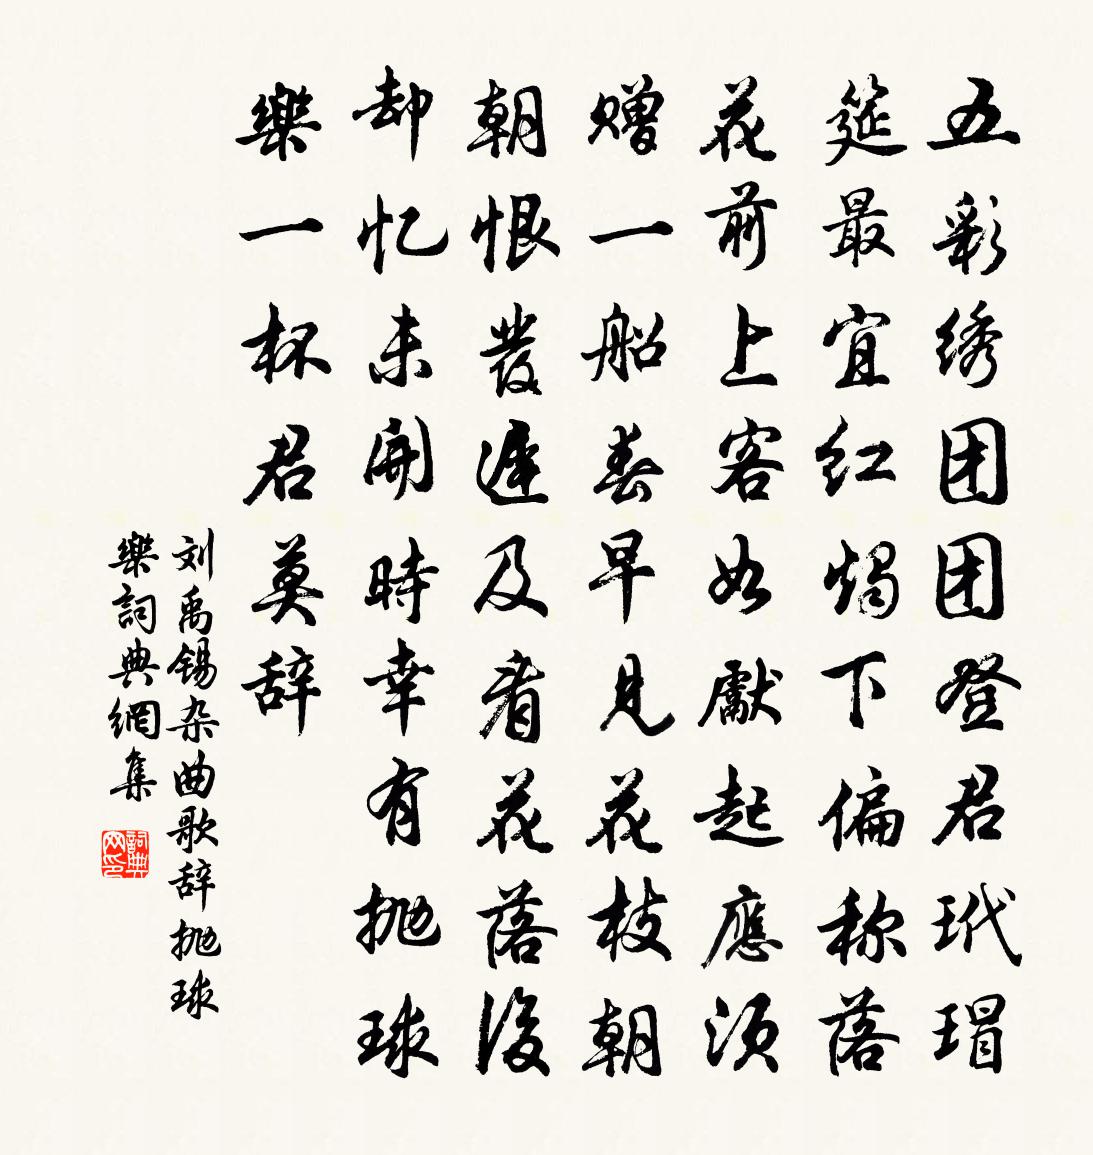 五彩绣团团登君玳瑁
筵最宜红燭下偏称落
花前上客如獻起應须
赠一船春早見花枝朝
朝恨發遲及看花落後
却忆未開時幸有抛球
樂一杯君莫辞
刘禹锡杂曲歌辞抛球
樂詞典網集
詞典网印